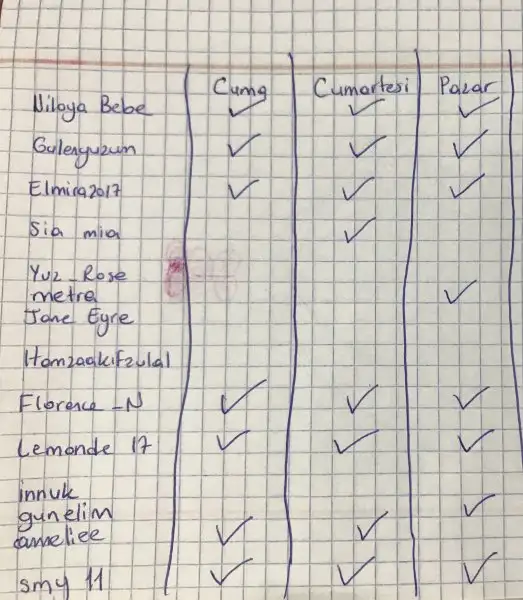 Cuma Cumartesi Pazar
Niloya Bebe ✓ ✓ ✓
Gulenyuzum ✓ ✓ ✓
Elmira2017 ✓ ✓ ✓
Sia mia ✓
Yuz_Rose
metra ✓
Jane Eyre
Hamzaakifzulal
Florence_N ✓ ✓ ✓
Lemonde 17 ✓ ✓ ✓
innuk
gunelim ✓
ameliee ✓ ✓
smy 11 ✓ ✓ ✓